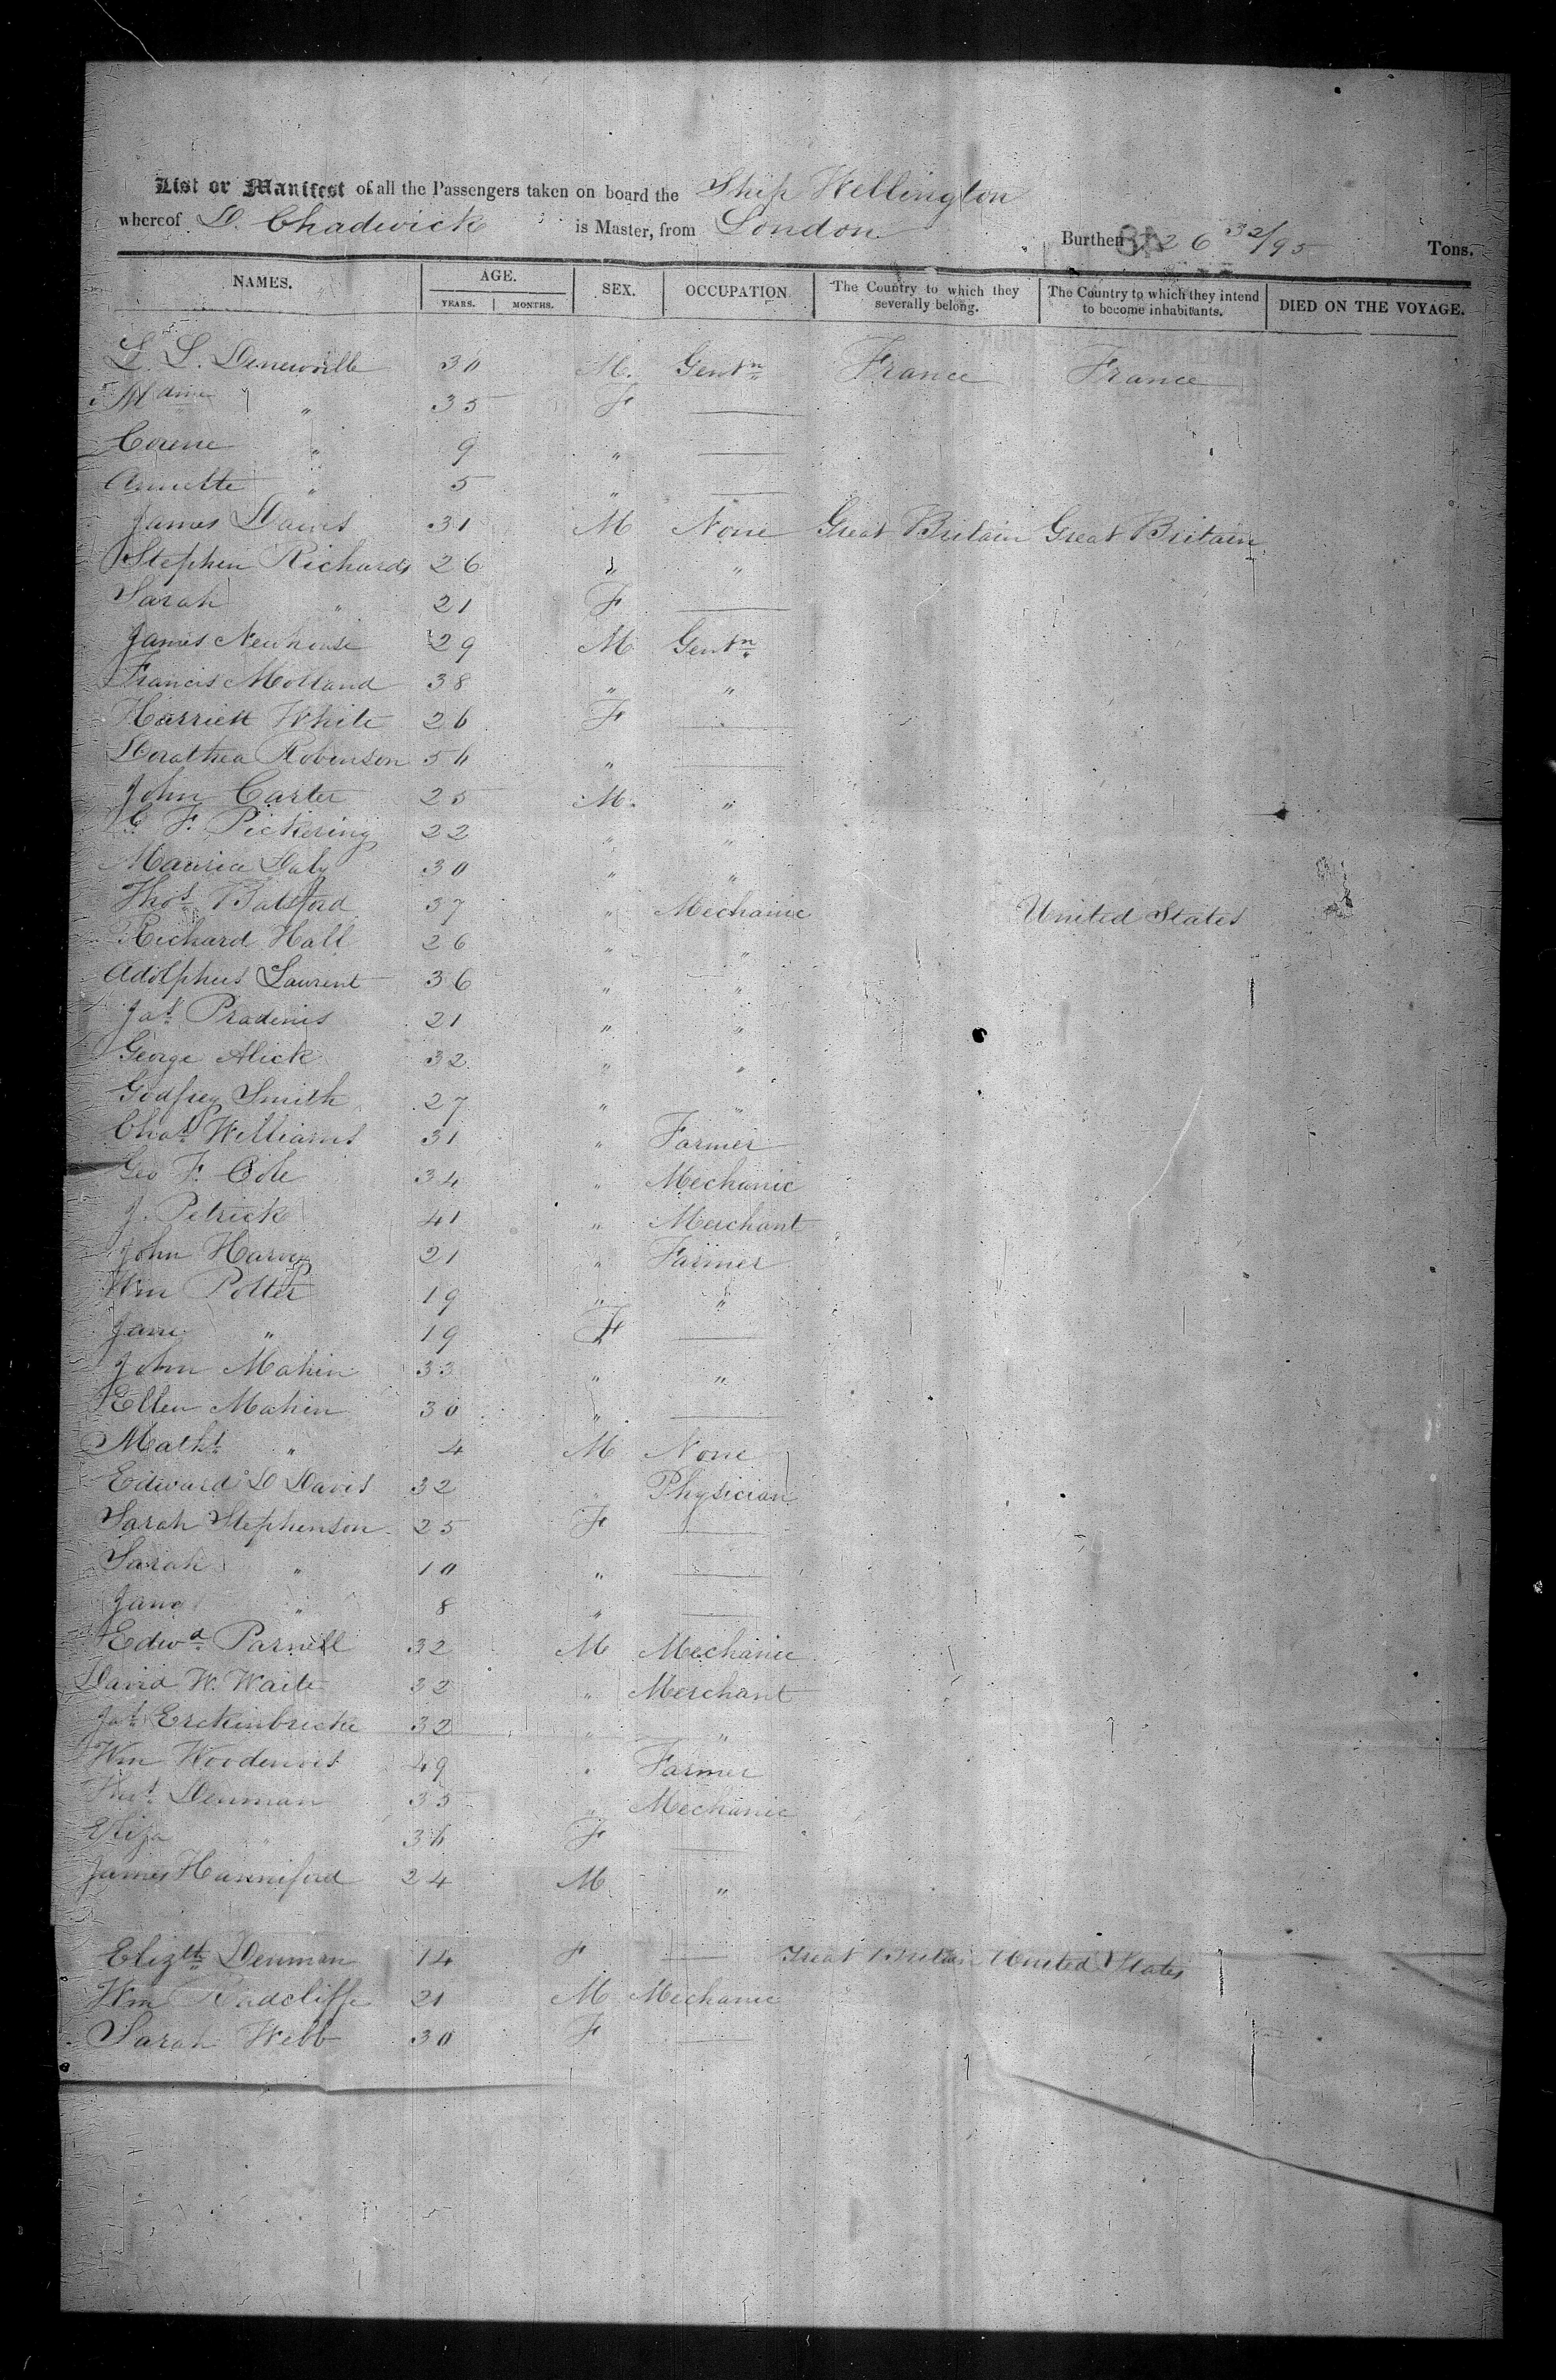 List or Manifest of all the Passengers taken on board the Ship Wellington
whereof D. Chadwick is Master, from London Burthen 726 32/95 Tons.
NAMES. AGE. SEX. OCCUPATION The Country to which they severally belong. The Country to which they intend to become inhabitants. DIED ON THE VOYAGE.
YEARS. MONTHS.
L. S. 30 M. Gentn France France
Mdme " 35 F —
" 9 " —
Annette " 5 " —
James Davis 31 M None Great Britain Great Britain
Stephen Richards 26 " "
Sarah " 21 F —
James Newhouse 29 M Gentn
Francis Molland 38 " "
Harriett White 26 F —
Dorathea Robinson 50 " —
John Carter 25 M. "
C. F. Pickering 22 " "
Maurice Daly 30 " "
Thos Batsford 37 " Mechanic United States
Richard Hall 26 " "
Adolphus Laurent 36 " "
Jas 21 " "
George Alick 32 " "
Godfrey Smith 27 " "
Chas Williams 31 " Farmer
Geo F. Cole 34 " Mechanic
J. Petrick 41 " Merchant
John Harvy 21 " Farmer
Wm Potter 19 " "
Jane " 19 F —
John Mahin 33 " "
Ellen Mahin 30 " —
Maths " 4 M None
Edward D Davis 32 " Physician
Sarah Stephenson 25 F —
Sarah " 10 " —
Jane " 8 " —
Edwd Parnell 32 M Mechanic
David W. Waite 32 " Merchant
Jas 32 " "
Wm 49 " Farmer
Thos Denman 35 " Mechanic
Eliza " 30 F —
James Hanniford 24 M "
Elizth Denman 14 F — Great Britain United States
Wm Radcliffe 21 M Mechanic
Sarah Webb 30 F —